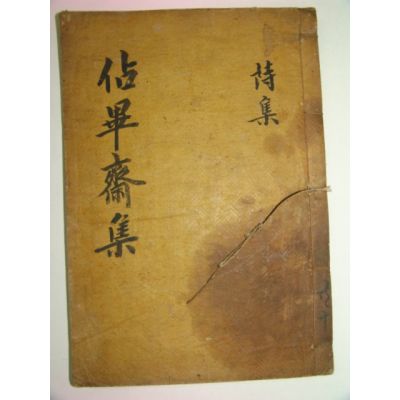 佔畢齋集
詩集